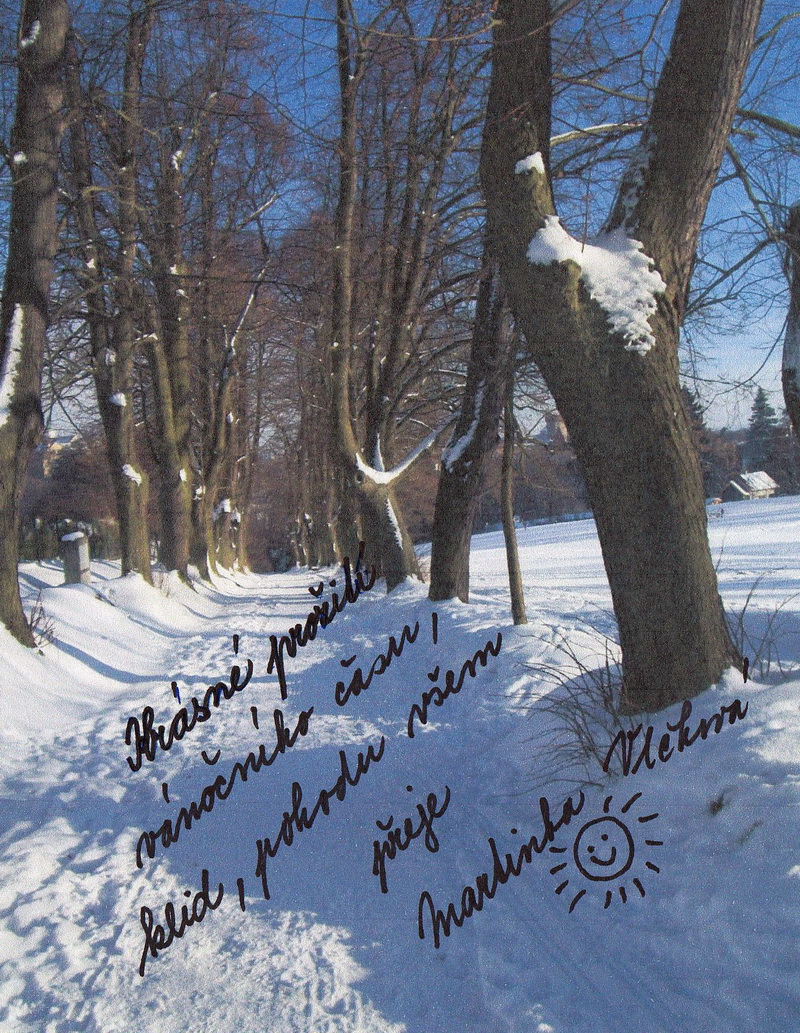 Krásné prožití
vánočního času,
klid, pohodu všem
přeje
Martinka Vlčková